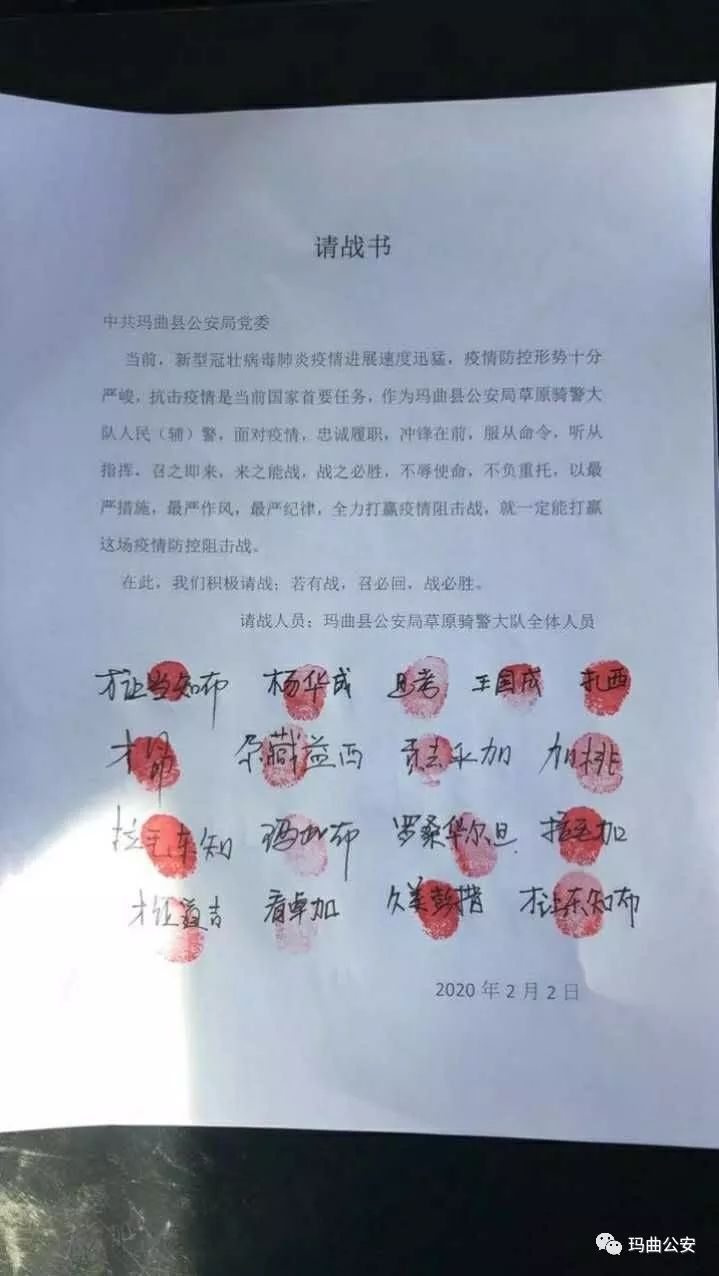 请战书
中共玛曲县公安局党委
当前，新型冠壮病毒肺炎疫情进展速度迅猛，疫情防控形势十分
严峻，抗击疫情是当前国家首要任务，作为玛曲县公安局草原骑警大
队人民（辅）警，面对疫情，忠诚履职，冲锋在前，服从命令，听从
指挥，召之即来，来之能战，战之必胜，不辱使命，不负重托，以最
严措施，最严作风，最严纪律，全力打赢疫情阻击战，就一定能打赢
这场疫情防控阻击战。
在此，我们积极请战；若有战，召必回，战必胜。
请战人员：玛曲县公安局草原骑警大队全体人员
才让当知布 杨华成 旦考 王国成 扎西
尕藏益西 贡去乎加 加桃
拉毛东知 罗桑华尔旦 拉毛加
看卓加 久美彭措 才让东知布
2020 年 2 月 2 日
玛曲公安